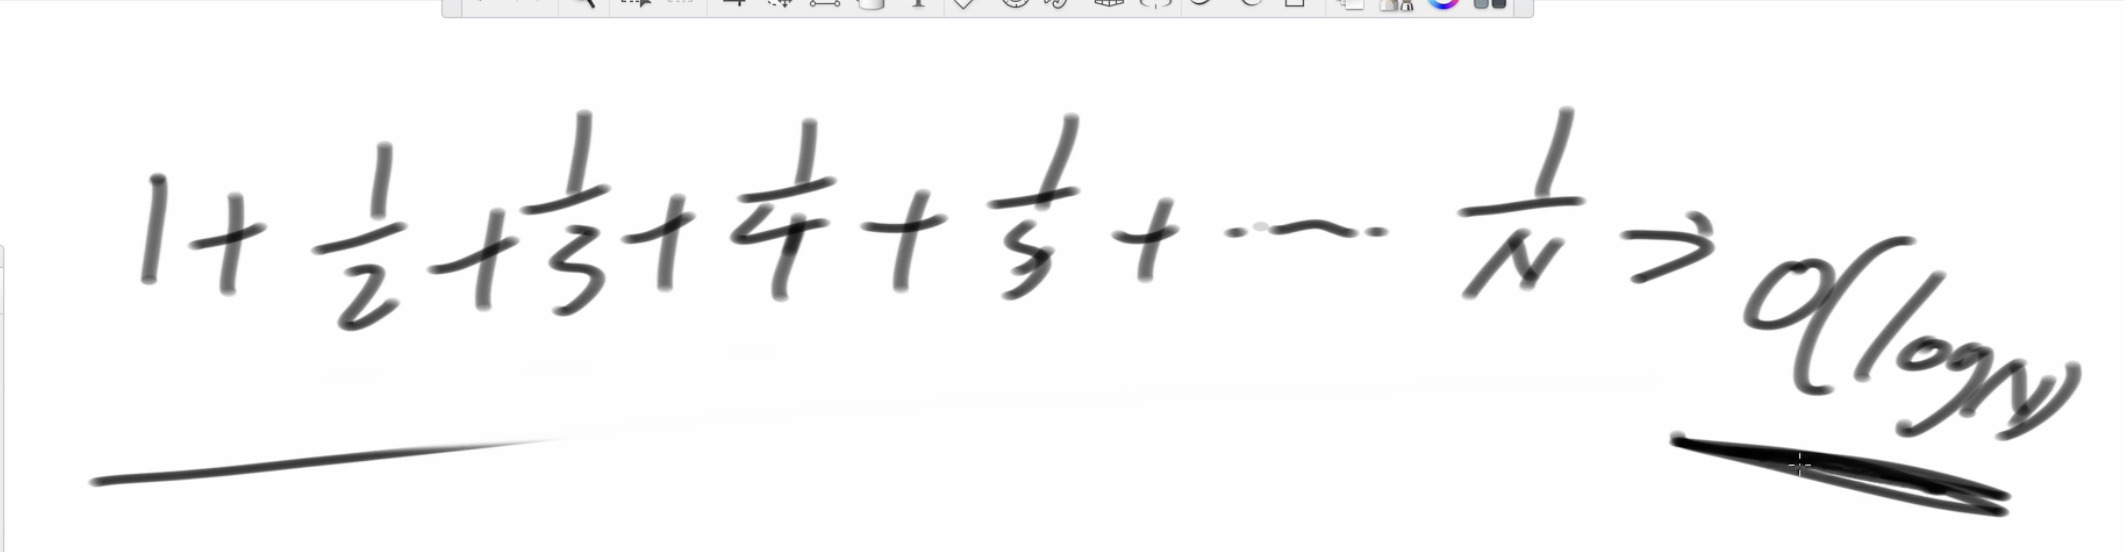 1 + 1/2 + 1/3 + 1/4 + 1/5 + ...... 1/N ⇒ O(logN)